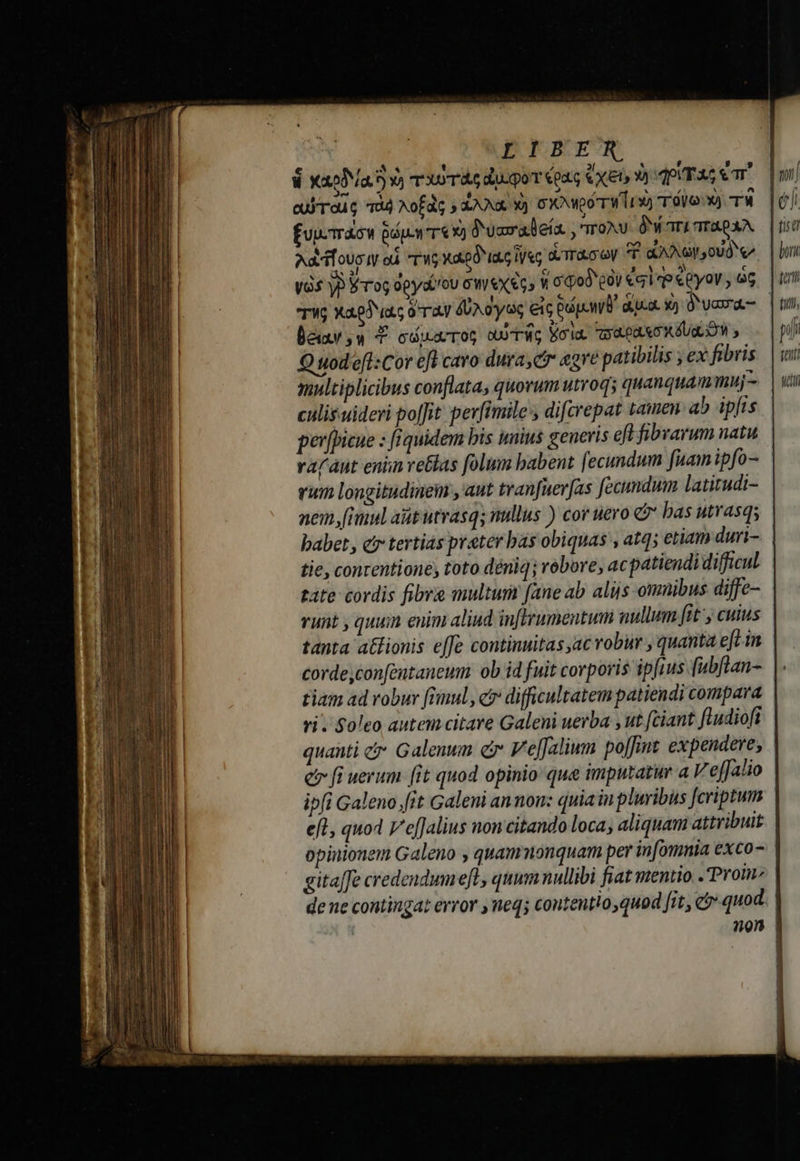 LIBER
ἡ καρδία ἢ καὶ ταύτας ἀμφοτέρας ἔχει, καὶ τρίτας ἐπ'
αὐταῖς τὰς λοξὰς, ἀλλὰ καὶ σκληρότητι καὶ τόνῳ καὶ τῇ
ξυμπάσῃ ῥώμῃ τε καὶ δυσπαθείᾳ, πολὺ δή τι παραλ
λάττουσιν αἱ τῆς καρδίας ἶνες ἁπασῶν τ ἄλλων, οὐδε-
νὸς γὰρ οὕτος ὀργάνου συνεχὲς, ἢ σφοδρὸν ἐστὶ τὸ ἔργον, ὡς
τῆς καρδίας ὅταν εὐλόγως εἰς ῥώμην θ' ἅμα καὶ δυσπά-
θειαν, ἡ τ σώματος αὐτῆς οὐσία παρασκευάσθη,
Quod est: Cor est caro dura, & ægre patibilis, ex fibris
multiplicibus conflata, quorum utroq; quanquam musˉ
culis uideri possit persimile, discrepat tamen ab ipsis
perspicue: siquidem bis unius generis est fibrarum natu
ra (aut enim rectas solum habent secundum suam ipso-
rum longitudinem, aut transuersas secundum latitudi-
nem, simul aūt utrasq; nullus) cor uero & has utrasq;
habet, & tertias præter has obiquas, atq; etiam duri-
tie, contentione, toto déniq; robore, ac patiendi difficul
tate cordis fibræ multum sane ab alijs omnibus diffe-
runt, quum enim aliud instrumentum nullum sit, cuius
tanta actionis esse continuitas, ac robur, quanta est in
corde, consentaneum ob id fuit corporis ipsius substan-
tiam ad robur simul, & difficultatem patiendi compara
ri. Soleo autem citare Galeni uerba, ut sciant studiosi
quanti & Galenum & Vessalium possint expendere,
& si uerum sit quod opinio quæ imputatur a Vessalio
ipsi Galeno, sit Galeni an non: quia in pluribus scriptum
est, quod Vessalius non citando loca, aliquam attribuit
opinionem Galeno, quam nonquam per insomnia exco-
gitasse credendum est, quum nullibi fiat mentio. Proin-
de ne contingat error, neq; contentio, quod sit, & quod
non